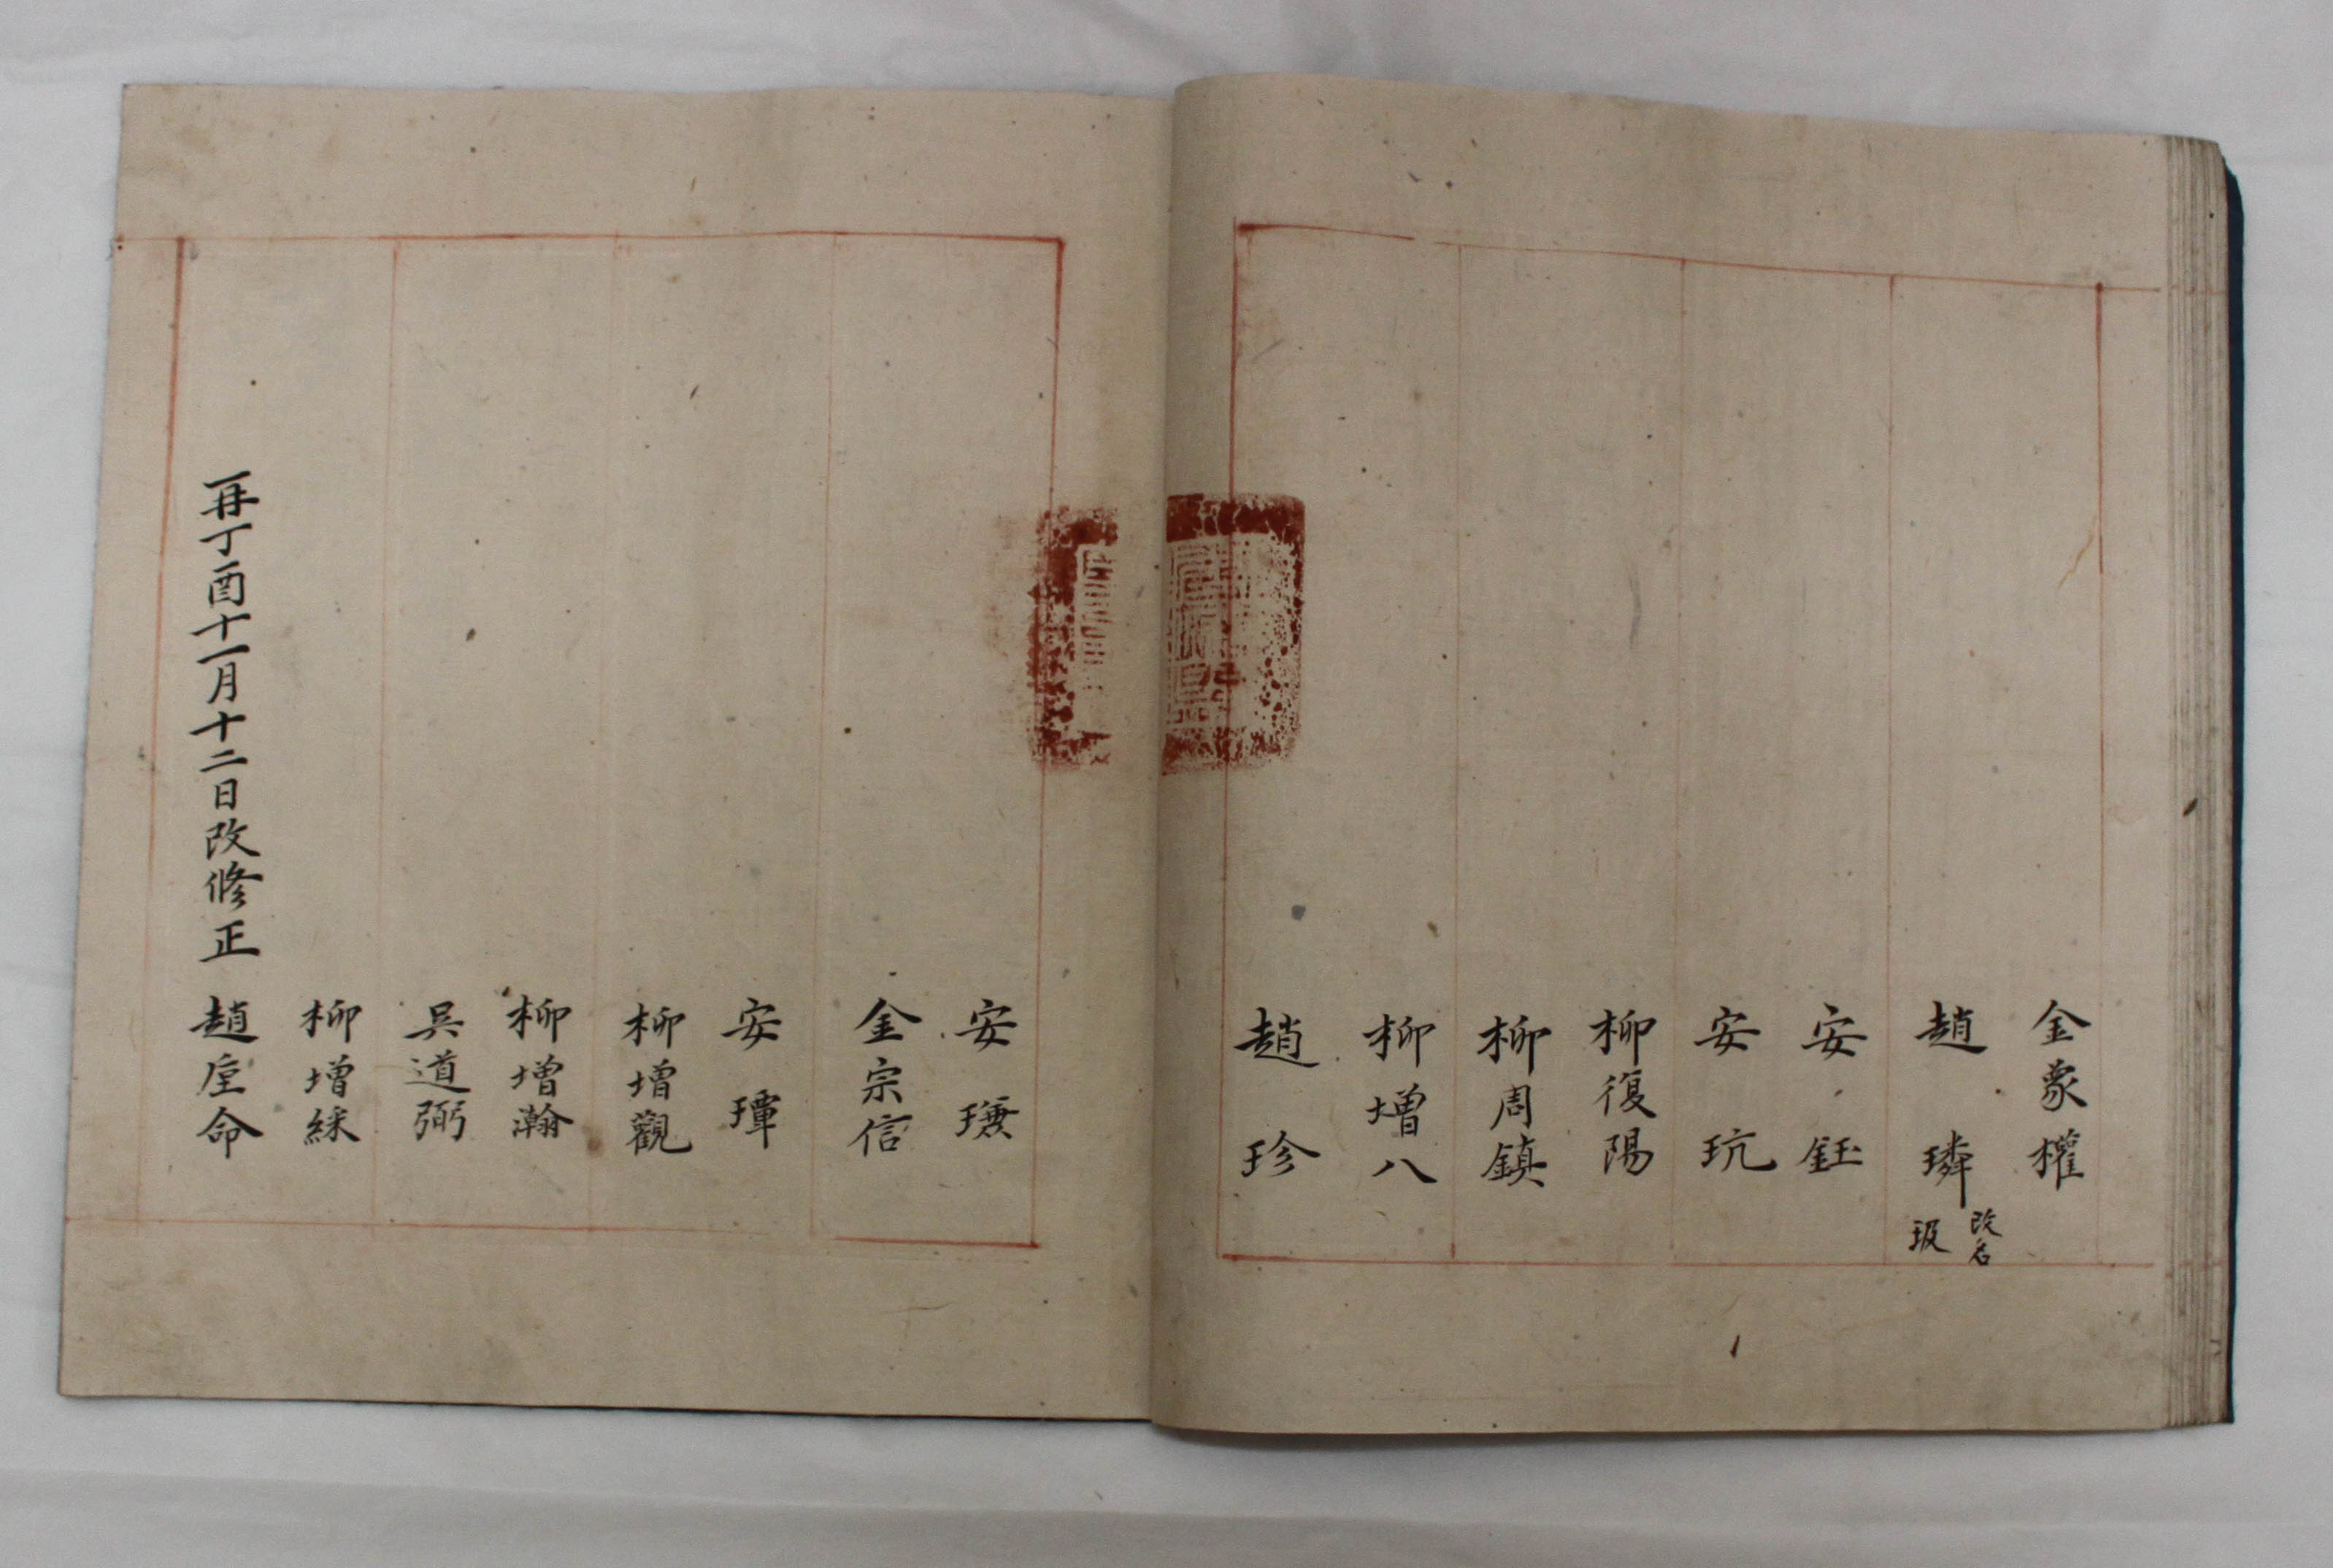 金象權
趙璘 改名 玻
安鈺
安玧
柳復陽
柳周鎮
柳增八
趙珍
安
金宗信
安瑋
柳增觀
柳增瀚
吳道弼
柳增綵
再丁酉十一月十二日改修正
趙命